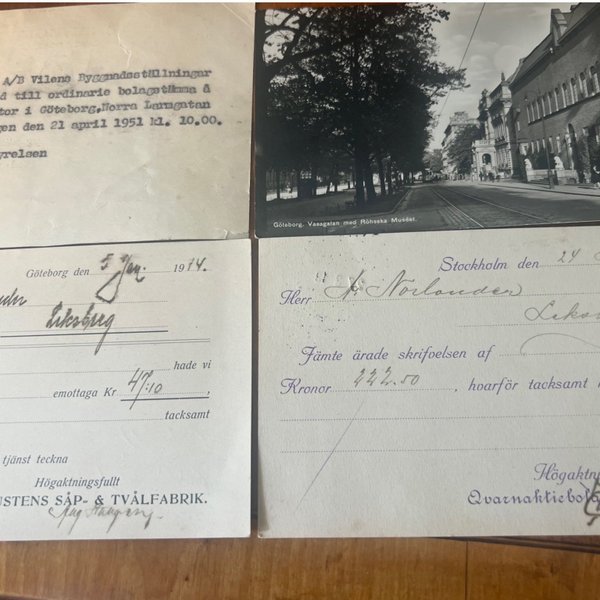 A/B Vilens Byggnadsställningar
d till ordinarie bolagstämma å
tor i Göteborg, Norra Larmgatan
gen den 21 april 1951 kl. 10.00.
yrelsen
Göteborg. Vasagatan med Röhsska Muséet.
Göteborg den 5 Jan. 1914.
Leksberg
hade vi
emottaga Kr 47.10,
tacksamt
tjänst teckna
Högaktningsfullt
USTENS SÅP- & TVÅLFABRIK.
Stockholm den 24
Herr A. Norlander
Leksb
Jämte ärade skrifvelsen af
Kronor 222.50, hvarför tacksamt
Högaktn
Qvarnaktiebola